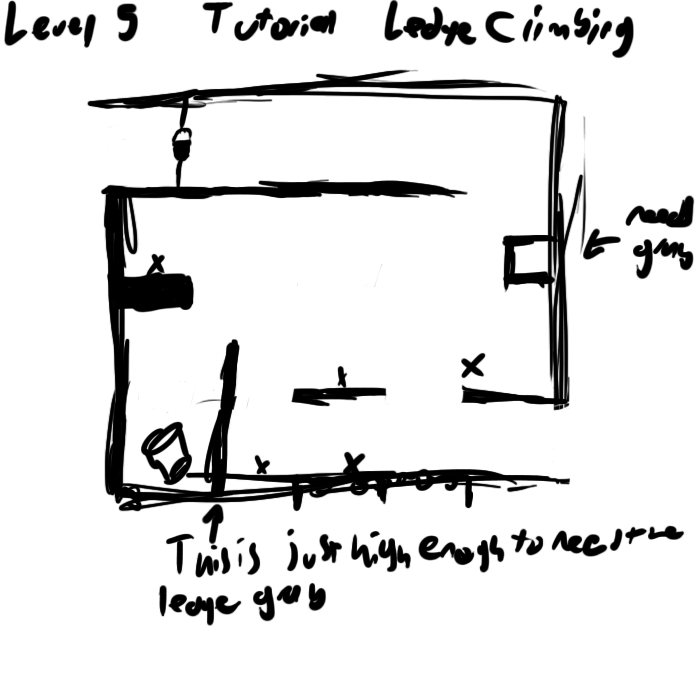 Level 5 Tutorial Ledge Climbing
x
need
grab
x
x
x
x
This is just high enough to need the
ledge grab